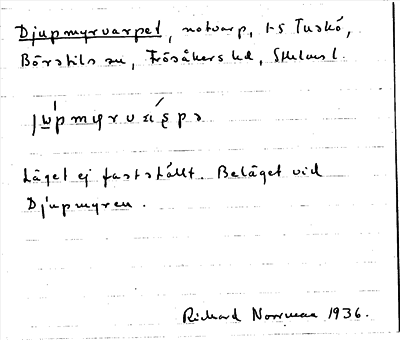 Djupmyrvarpet, notvarp, t-s Tuskö,
Börstils sn, Frösåkers hd, Sthlms l.
Läget ej fastställt. Beläget vid
Djupmyren.
Richard Norrman 1936.